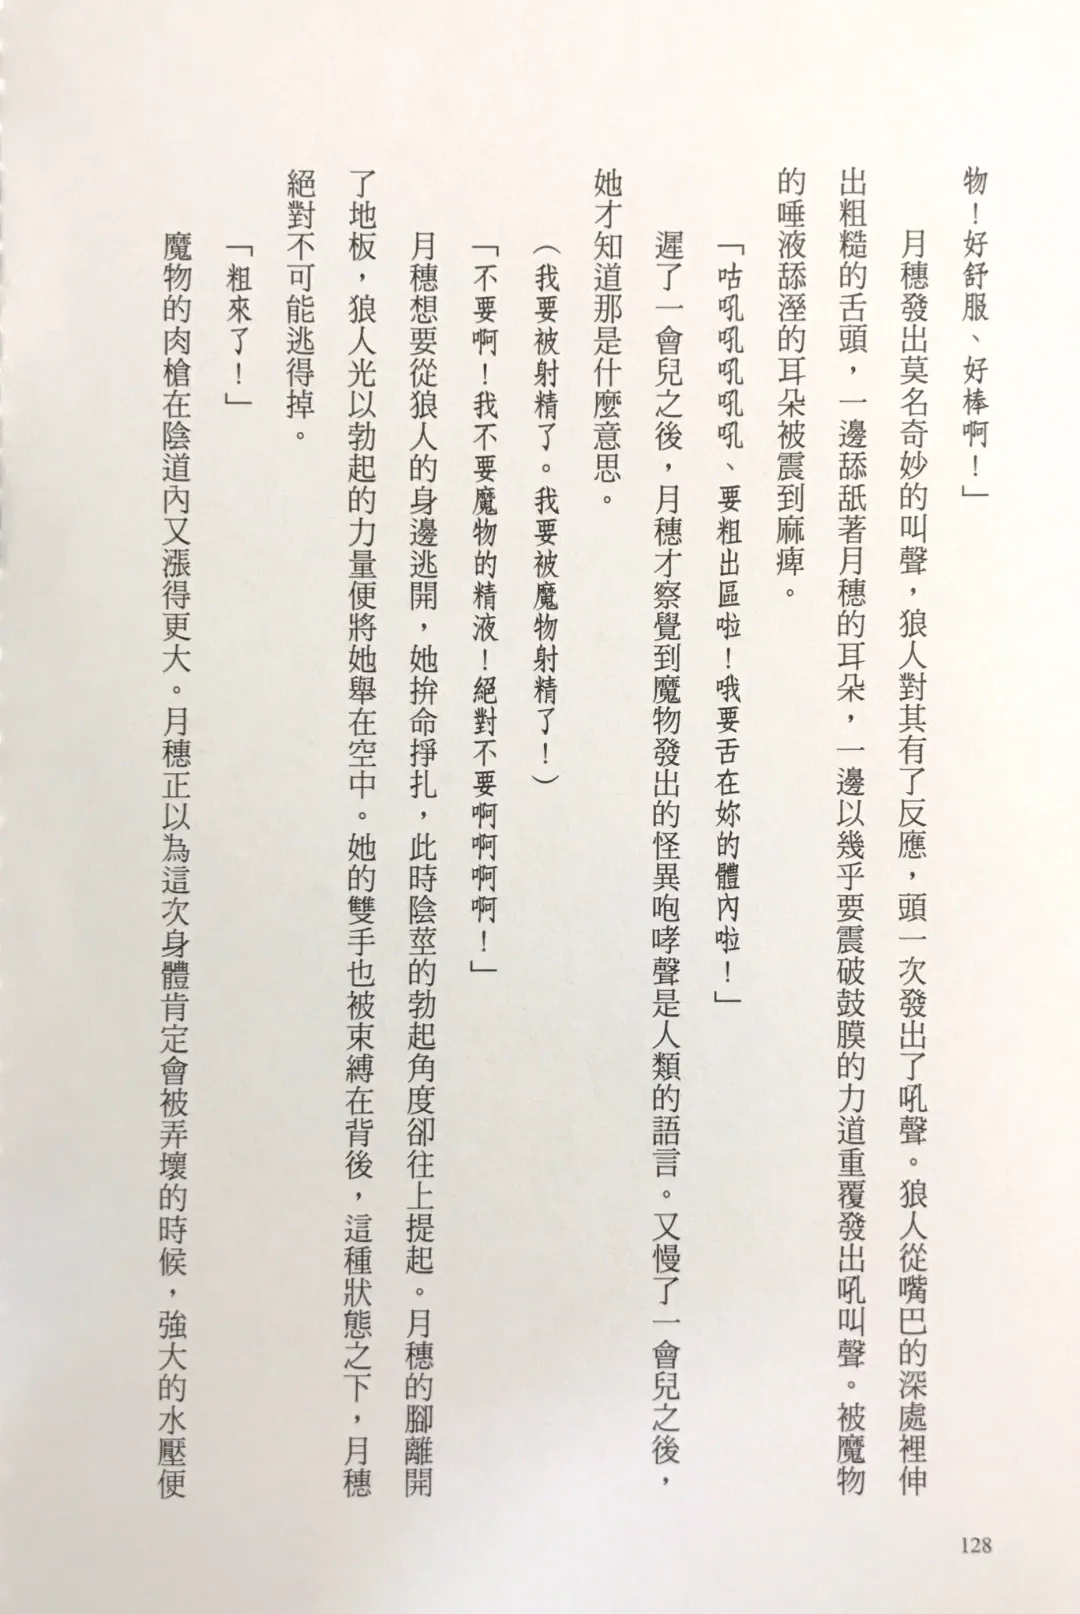 物！好舒服、好棒啊！」
月穗發出莫名奇妙的叫聲，狼人對其有了反應，頭一次發出了吼聲。狼人從嘴巴的深處裡伸
出粗糙的舌頭，一邊舔舐著月穗的耳朵，一邊以幾乎要震破鼓膜的力道重覆發出吼叫聲。被魔物
的唾液舔溼的耳朵被震到麻痺。
「咕吼吼吼吼吼、要粗出區啦！哦要舌在妳的體內啦！」
遲了一會兒之後，月穗才察覺到魔物發出的怪異咆哮聲是人類的語言。又慢了一會兒之後，
她才知道那是什麼意思。
（我要被射精了。我要被魔物射精了！）
「不要啊！我不要魔物的精液！絕對不要啊啊啊啊！」
月穗想要從狼人的身邊逃開，她拚命掙扎，此時陰莖的勃起角度卻往上提起。月穗的腳離開
了地板，狼人光以勃起的力量便將她舉在空中。她的雙手也被束縛在背後，這種狀態之下，月穗
絕對不可能逃得掉。
「粗來了！」
魔物的肉槍在陰道內又漲得更大。月穗正以為這次身體肯定會被弄壞的時候，強大的水壓便
128